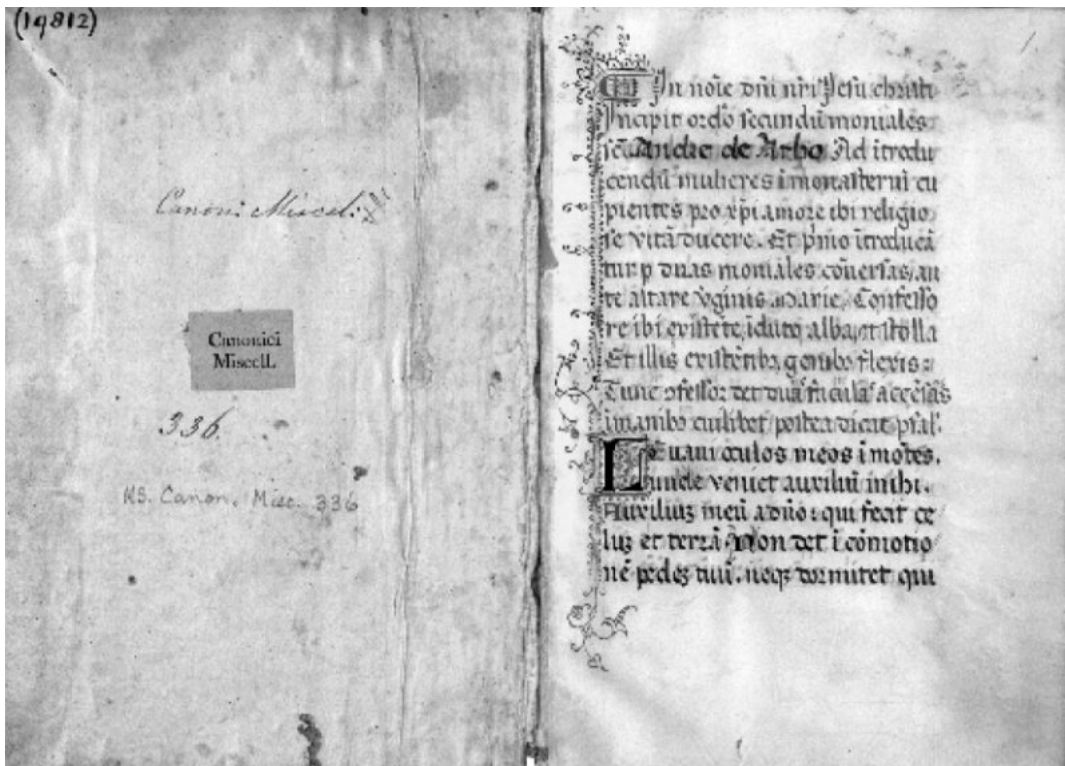 (19812)
Canonici Miscel:
Canonici
Miscell.
336
MS. Canon. Misc. 336
1.
In noīe dn̄i nr̄i Jesu christi
Incipit ordo secundū moniales
Andree de Arbo Ad ītrodu
cendū mulieres ī monasteruī cu
pientes pro xp̄i amore ibi religio
se vitā ducere. Et pͥmo ītroducā
tur p duas moniales cōuersas, an
te altare vginis marie, Confesso
re ibi existēte, īduto alba, et stolla
Et illis existētibꝫ genibꝫ flexis:
Tunc ꝯfessor det duas accēsas
ī manibꝫ cuilibet postea dicat psal.
Leuaui oculos meos ī mōtes.
unde veniet auxiliū mihi.
Auxiliuꝫ meū a dn̄o: qui fecit ce
luꝫ et terrā. Non det ī cōmotio
nē pedeꝫ tuū. neqꝫ dormitet qui